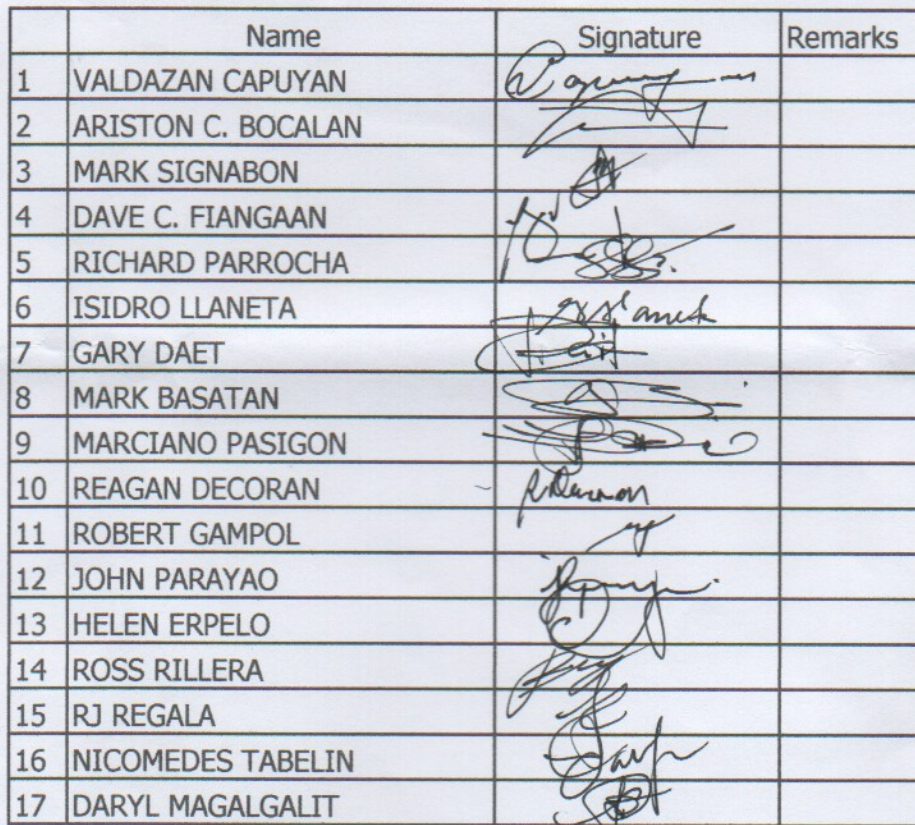 Name Signature Remarks
1 VALDAZAN CAPUYAN
2 ARISTON C. BOCALAN
3 MARK SIGNABON
4 DAVE C. FIANGAAN
5 RICHARD PARROCHA
6 ISIDRO LLANETA
7 GARY DAET
8 MARK BASATAN
9 MARCIANO PASIGON
10 REAGAN DECORAN
11 ROBERT GAMPOL
12 JOHN PARAYAO
13 HELEN ERPELO
14 ROSS RILLERA
15 RJ REGALA
16 NICOMEDES TABELIN
17 DARYL MAGALGALIT